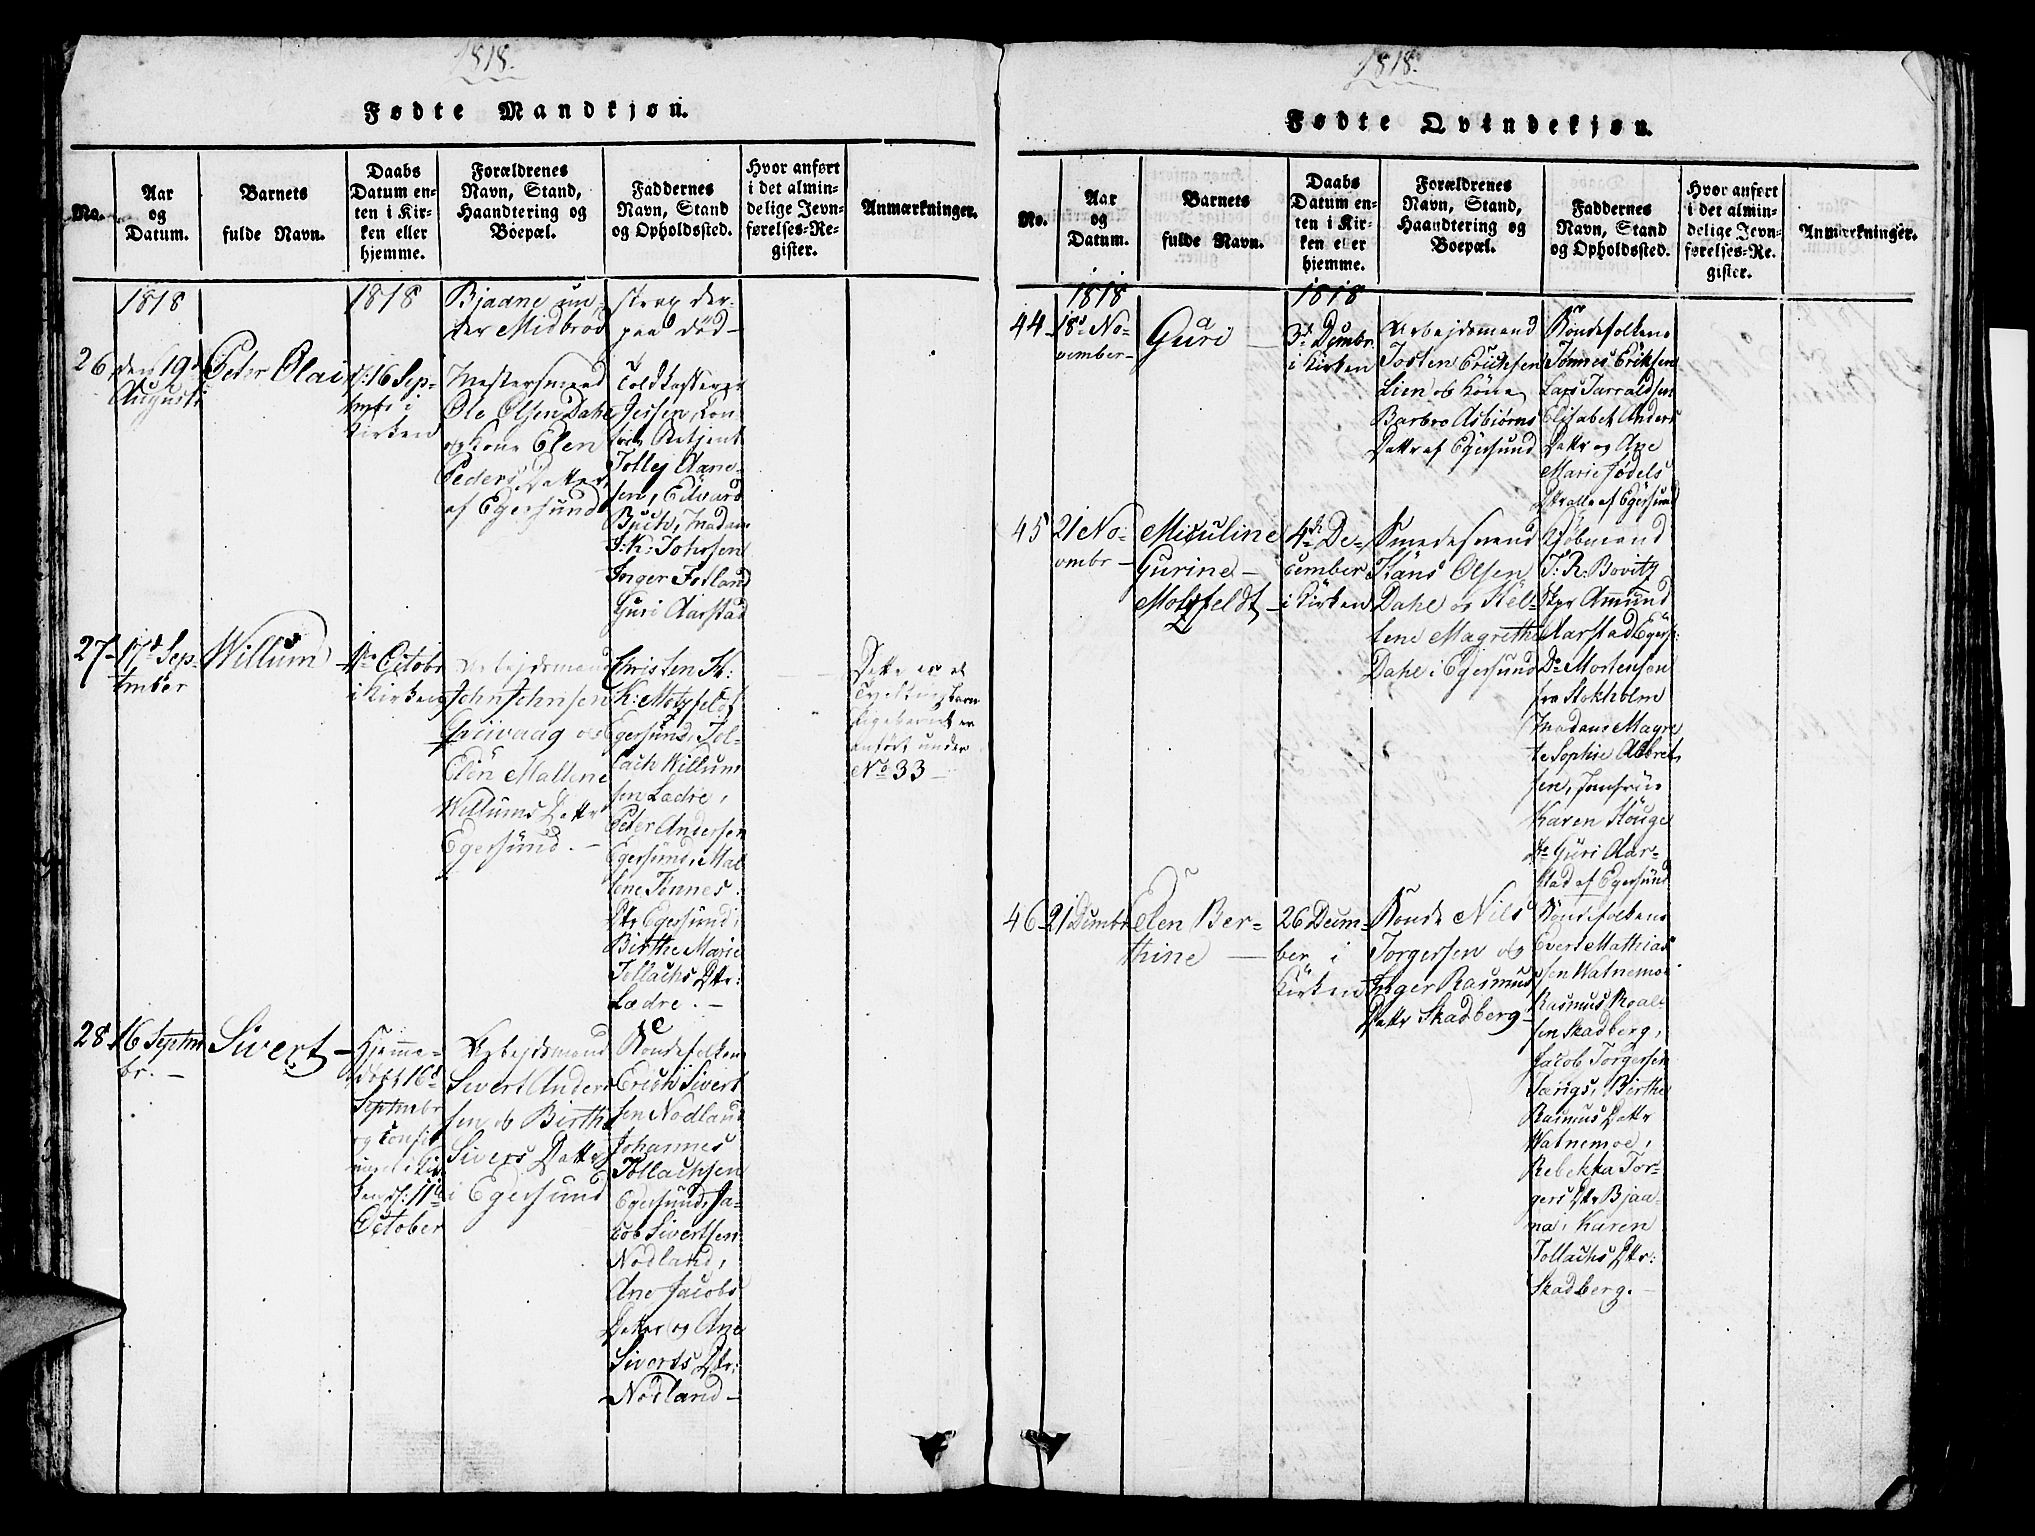 1818.
Fødte Mandkjøn.
No.
Aar
og
Datum.
Barnets
fulde Navn.
Daabs
Datum en-
ten i Kir-
ken eller
hjemme.
Forældrenes
Navn, Stand,
Haandtering og
Boepæl.
Faddernes
Navn, Stand
og Opholdssted.
Hvor anført
i det almin-
delige Jevn-
førelses-Re-
gister.
Anmærkninger.
1818
1818
Bjaane un-
der Midbrød
strax der-
paa død -
26
den 19d
Augusti
Peter Olai
d: 16 Sep-
tmbr i
Kirken
Mestersmand
Ole Olsen Dahe
og Kone Elen
Peders Datter
af Egersund
Toldkasserer
Jessen, Con-
toir Betjent
Tolley Aane-
sen, Edvard
Puch, Madam
J: K: Johnsen
Inger Fotland
Guri Aarstad
27
17d Sep-
tember
Willum
4de Octobr
i Kirken
Arbejdsmand
John Johnsen
Griivaag og
Elen Mallene
Willums Dattr
Egersund. -
Christen H:
K: Motzfeldt
Egersund, Tol-
lach Willum
sen Ladre,
Peter Andersen
Egersund, Mal
lene Tønnes
Dtr Egersund,
Birthe Marie
Tollachs Dtr:
Lædre. -
Dette er et
Tvillingbarn
Pigebarnet er
anført under
No 33 -
28
16 Septm
br. -
Sivert -
Hjemme-
døbt 16d
Septmbr
og Confir
meret i Kir
ken d: 11d
October
Arbejdsmand
Sivert Anders
sen og Birthe
Sivers Dattr
i Egersund
Bondefolkene
Erich Sivert
sen Nodland
Johannes
Tollachsen
Egersund, Ja-
cob Sivertsen
Nodland,
Ane Jacobs
Datter og Ane
Siverts Dtr:
Nodland -
1818.
Fødte Qvindekjøn.
No.
Aar
og
Datum.
Barnets
fulde Navn.
Daabs
Datum en-
ten i Kir-
ken eller
hjemme.
Forældrenes
Navn, Stand,
Haandtering og
Boepæl.
Faddernes
Navn, Stand
og Opholdssted.
Hvor anført
i det almin-
delige Jevn-
førelses-Re-
gister.
Anmærkninger.
1818
1818
44
18d No-
vember -
Guri
3d Decmbr
i Kirken
Arbejdsmand
Josten Erichsen
Lien og Kone
Barbro Asbiørns
Dattr af Egersund
Bondefolkene
Tønnes Eriksen
Lars Tarraldsen
Elisabet Anders
Dattr og Ane
Marie Jødels
Dtr alle af Egersund
45
21 No-
vmbr -
Miculine
Gurine -
Motzfeldt -
4de De-
cember
i Kirken
Smedesvend
Hans Olsen
Dahe og Hel-
lene Magrethe
Dahe i Egersund
Kiøbmand
J: R: Bovitz
Skpr Amund
Aarstad Egers:
Do Mortensen
fra Stokholm
Madam Magre
te Sophie Albret
sen, Jomfrue
Karen Houge
og Guri Aar-
stad af Egersund
46
21 Decmbr
Elen Ber-
thine -
26 Decem-
ber i
Kirken
Bonde Nils
Torgersen og
Inger Rasmus
Dattr Skadberg -
Bondefolkene
Evert Mathias
sen Watnemoe
Rasmus Roald
sen Skadberg,
Jacob Torgersen
Tængs, Birthe
Rasmus Dattr
Watnemoe,
Rebekka Tor-
gers Dtr Bjaa-
na, Karen
Tollachs Dtr:
Skadberg. -